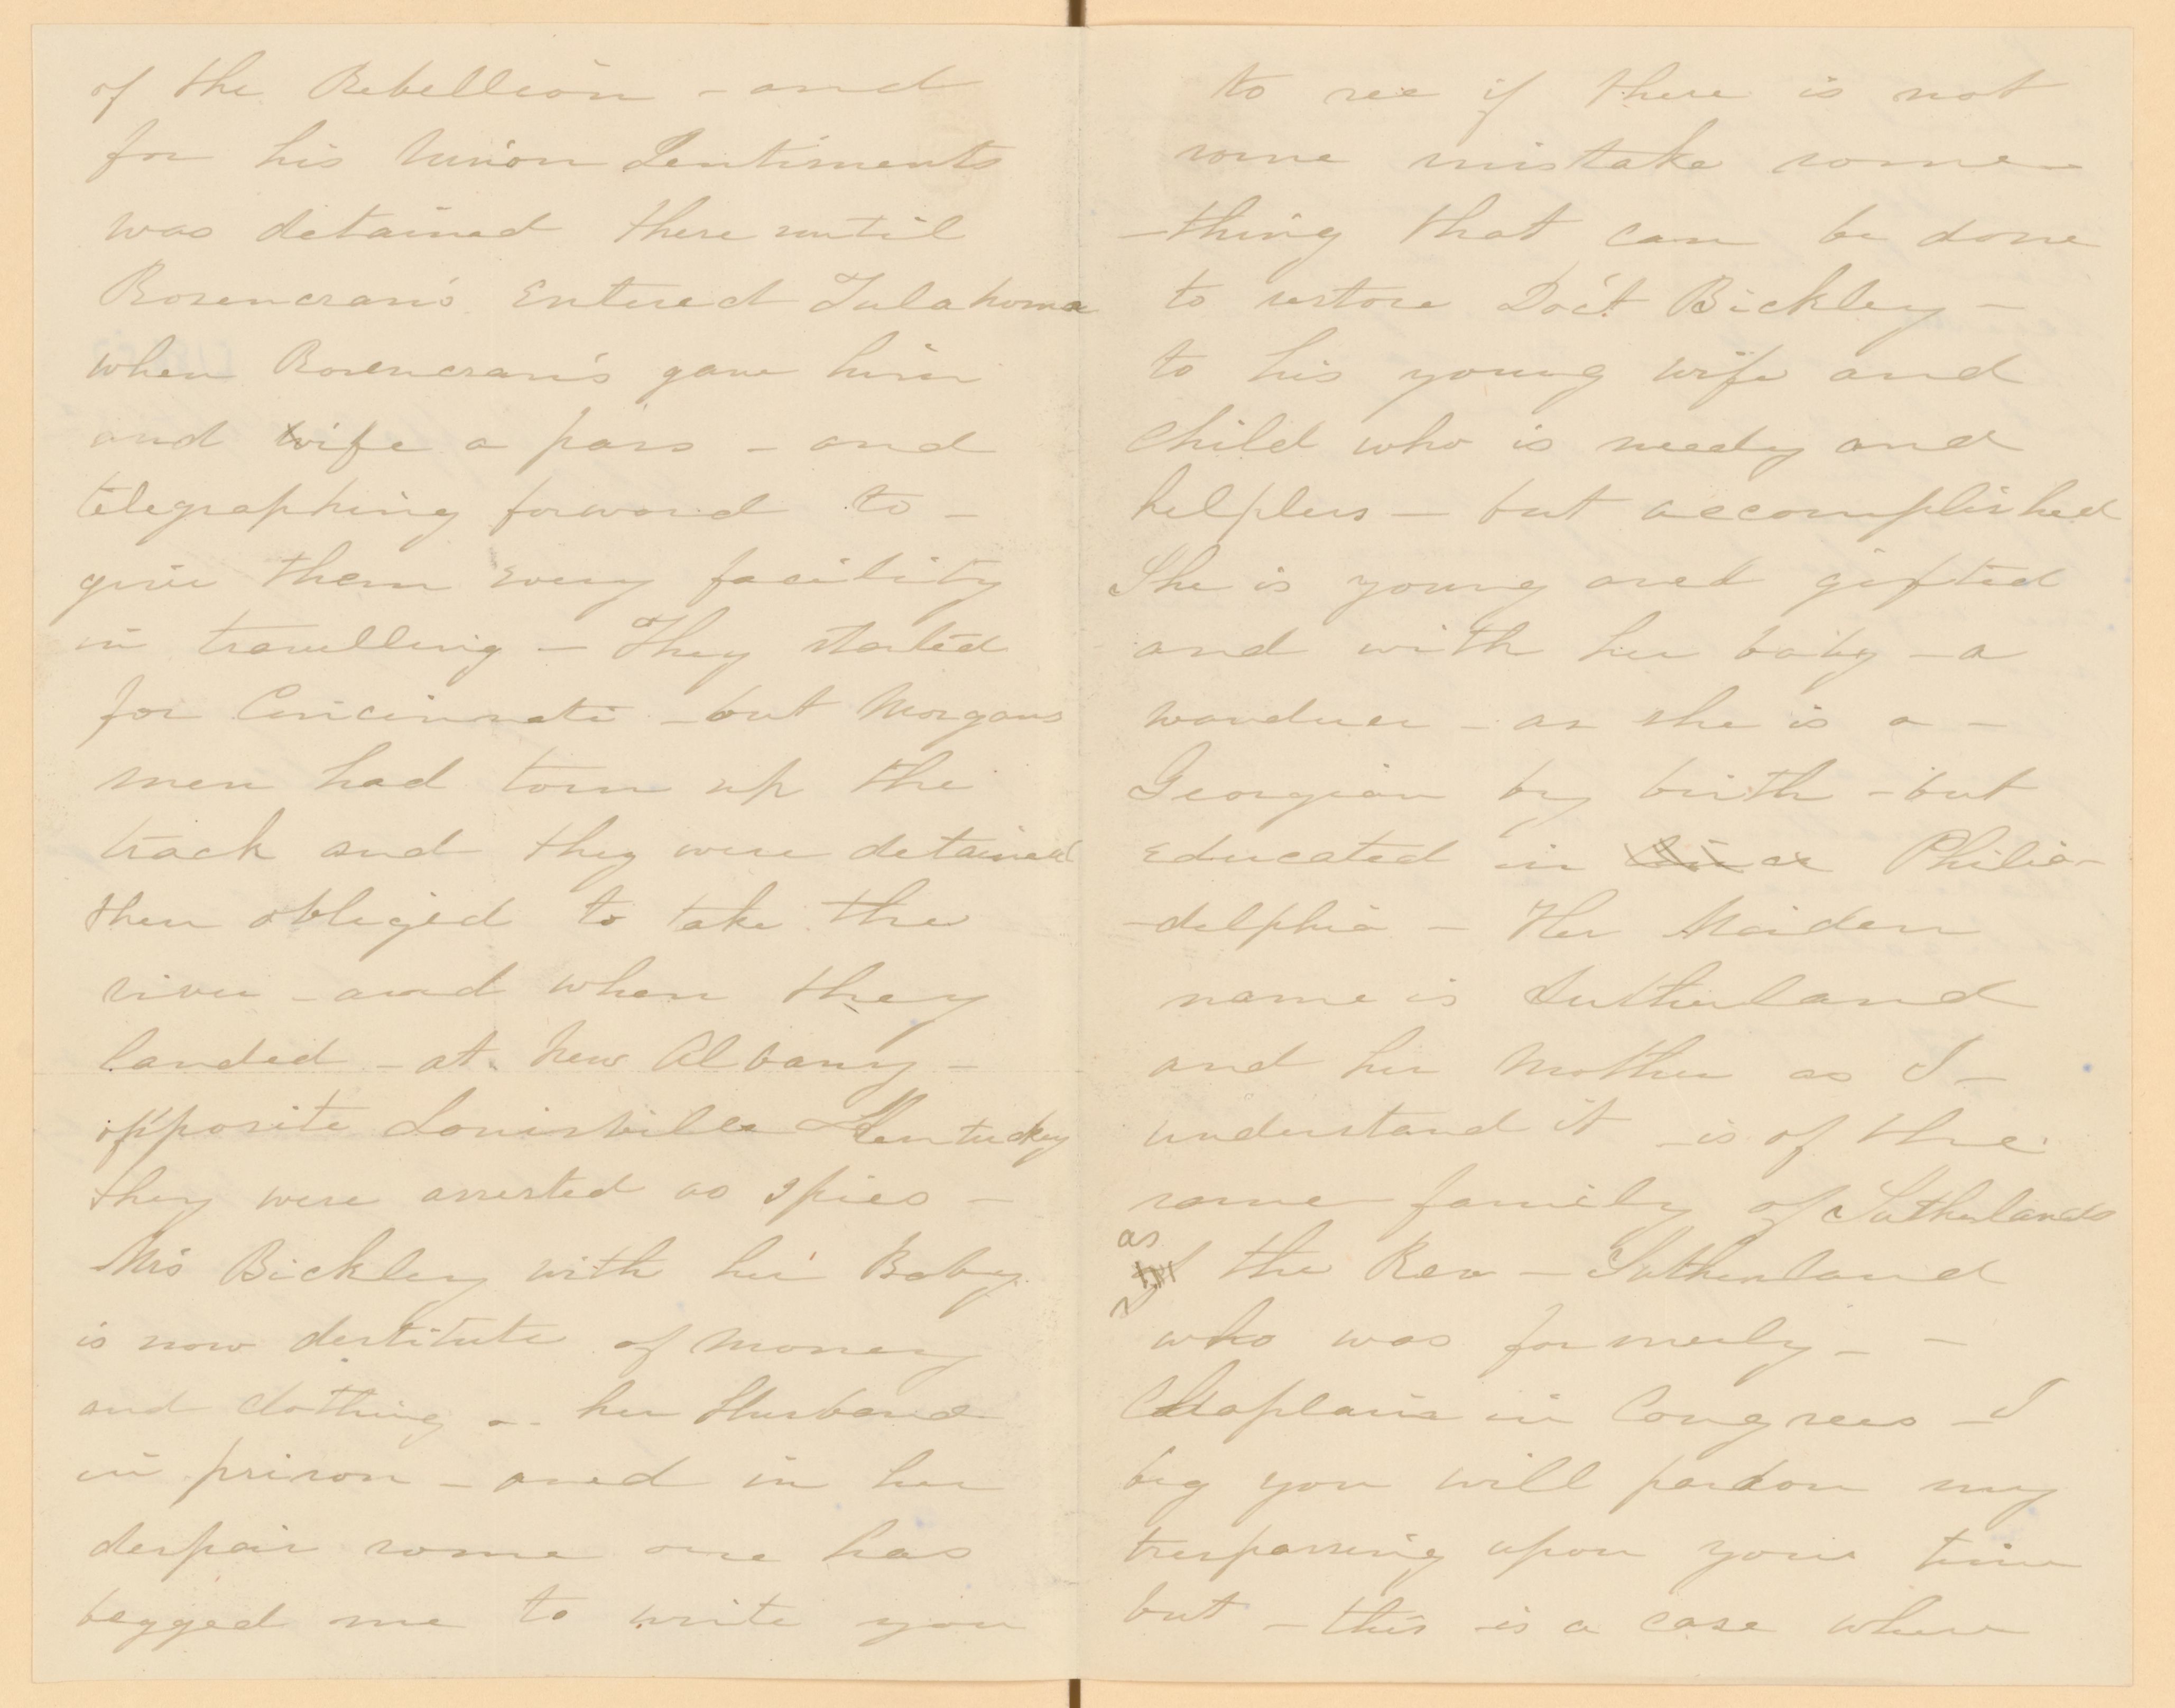 of the Rebellion - and
for his Union Sentiments
was detained there until
Rosencrans entered Tulahoma
when Rosencrans gave him
and wife a pass - and
telegraphing forward to -
give them every facility
in travelling - They started
for Cincinnati - but Morgans
men had torn up the
track and they were detained
then obliged to take the
river - and when they
landed - at New Albany -
opposite Louisville Kentucky
they were arrested as spies -
Mrs Bickley with her Baby
is now destitute of money
and clothing - her Husband
in prison - and in her
despair some one has
begged me to write you
to see if there is not
some mistake some -
- thing that can be done
to restore Doct Bickley -
to his young wife and
child who is needy and
helpless - but accomplished
She is young and gifted
and with her baby - a
wanderer - as she is a -
Georgian by birth - but
educated in Phila-
-delphia - Her Maiden
name is Sutherland
and her Mother as I -
understand it - is of the
same family of Sutherlands
as the Rev - Sutherland
who was formerly - -
Chaplain in Congress - I
beg you will pardon my
trespassing upon your time
but - this is a case where